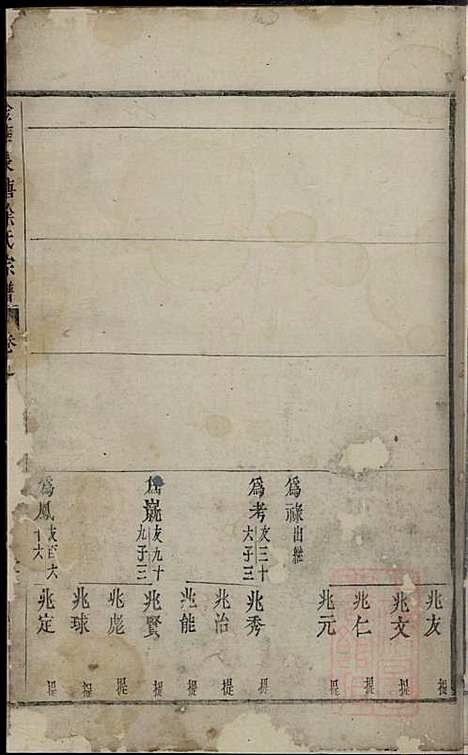 為祿出繼
為考友三十大子三
為嶷友九十九子三
為鳳友百六十六
兆友 提
兆文 提
兆仁 提
兆元 提
兆秀 提
兆治 提
兆能 提
兆賢 提
兆彪 提
兆球 提
兆定 提
徐氏宗譜 卷